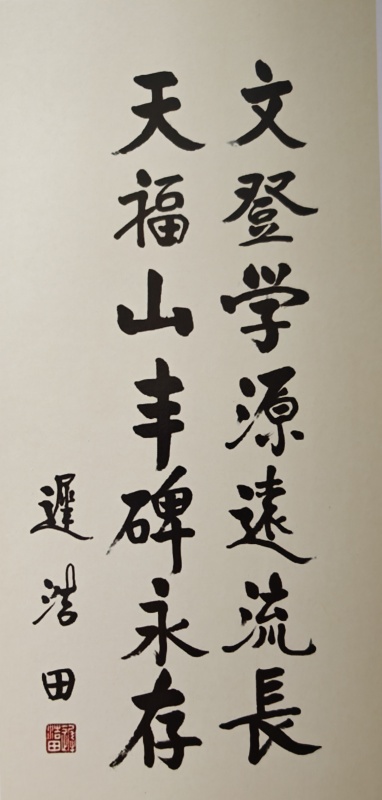 文登学源遠流長
天福山丰碑永存
遲浩田